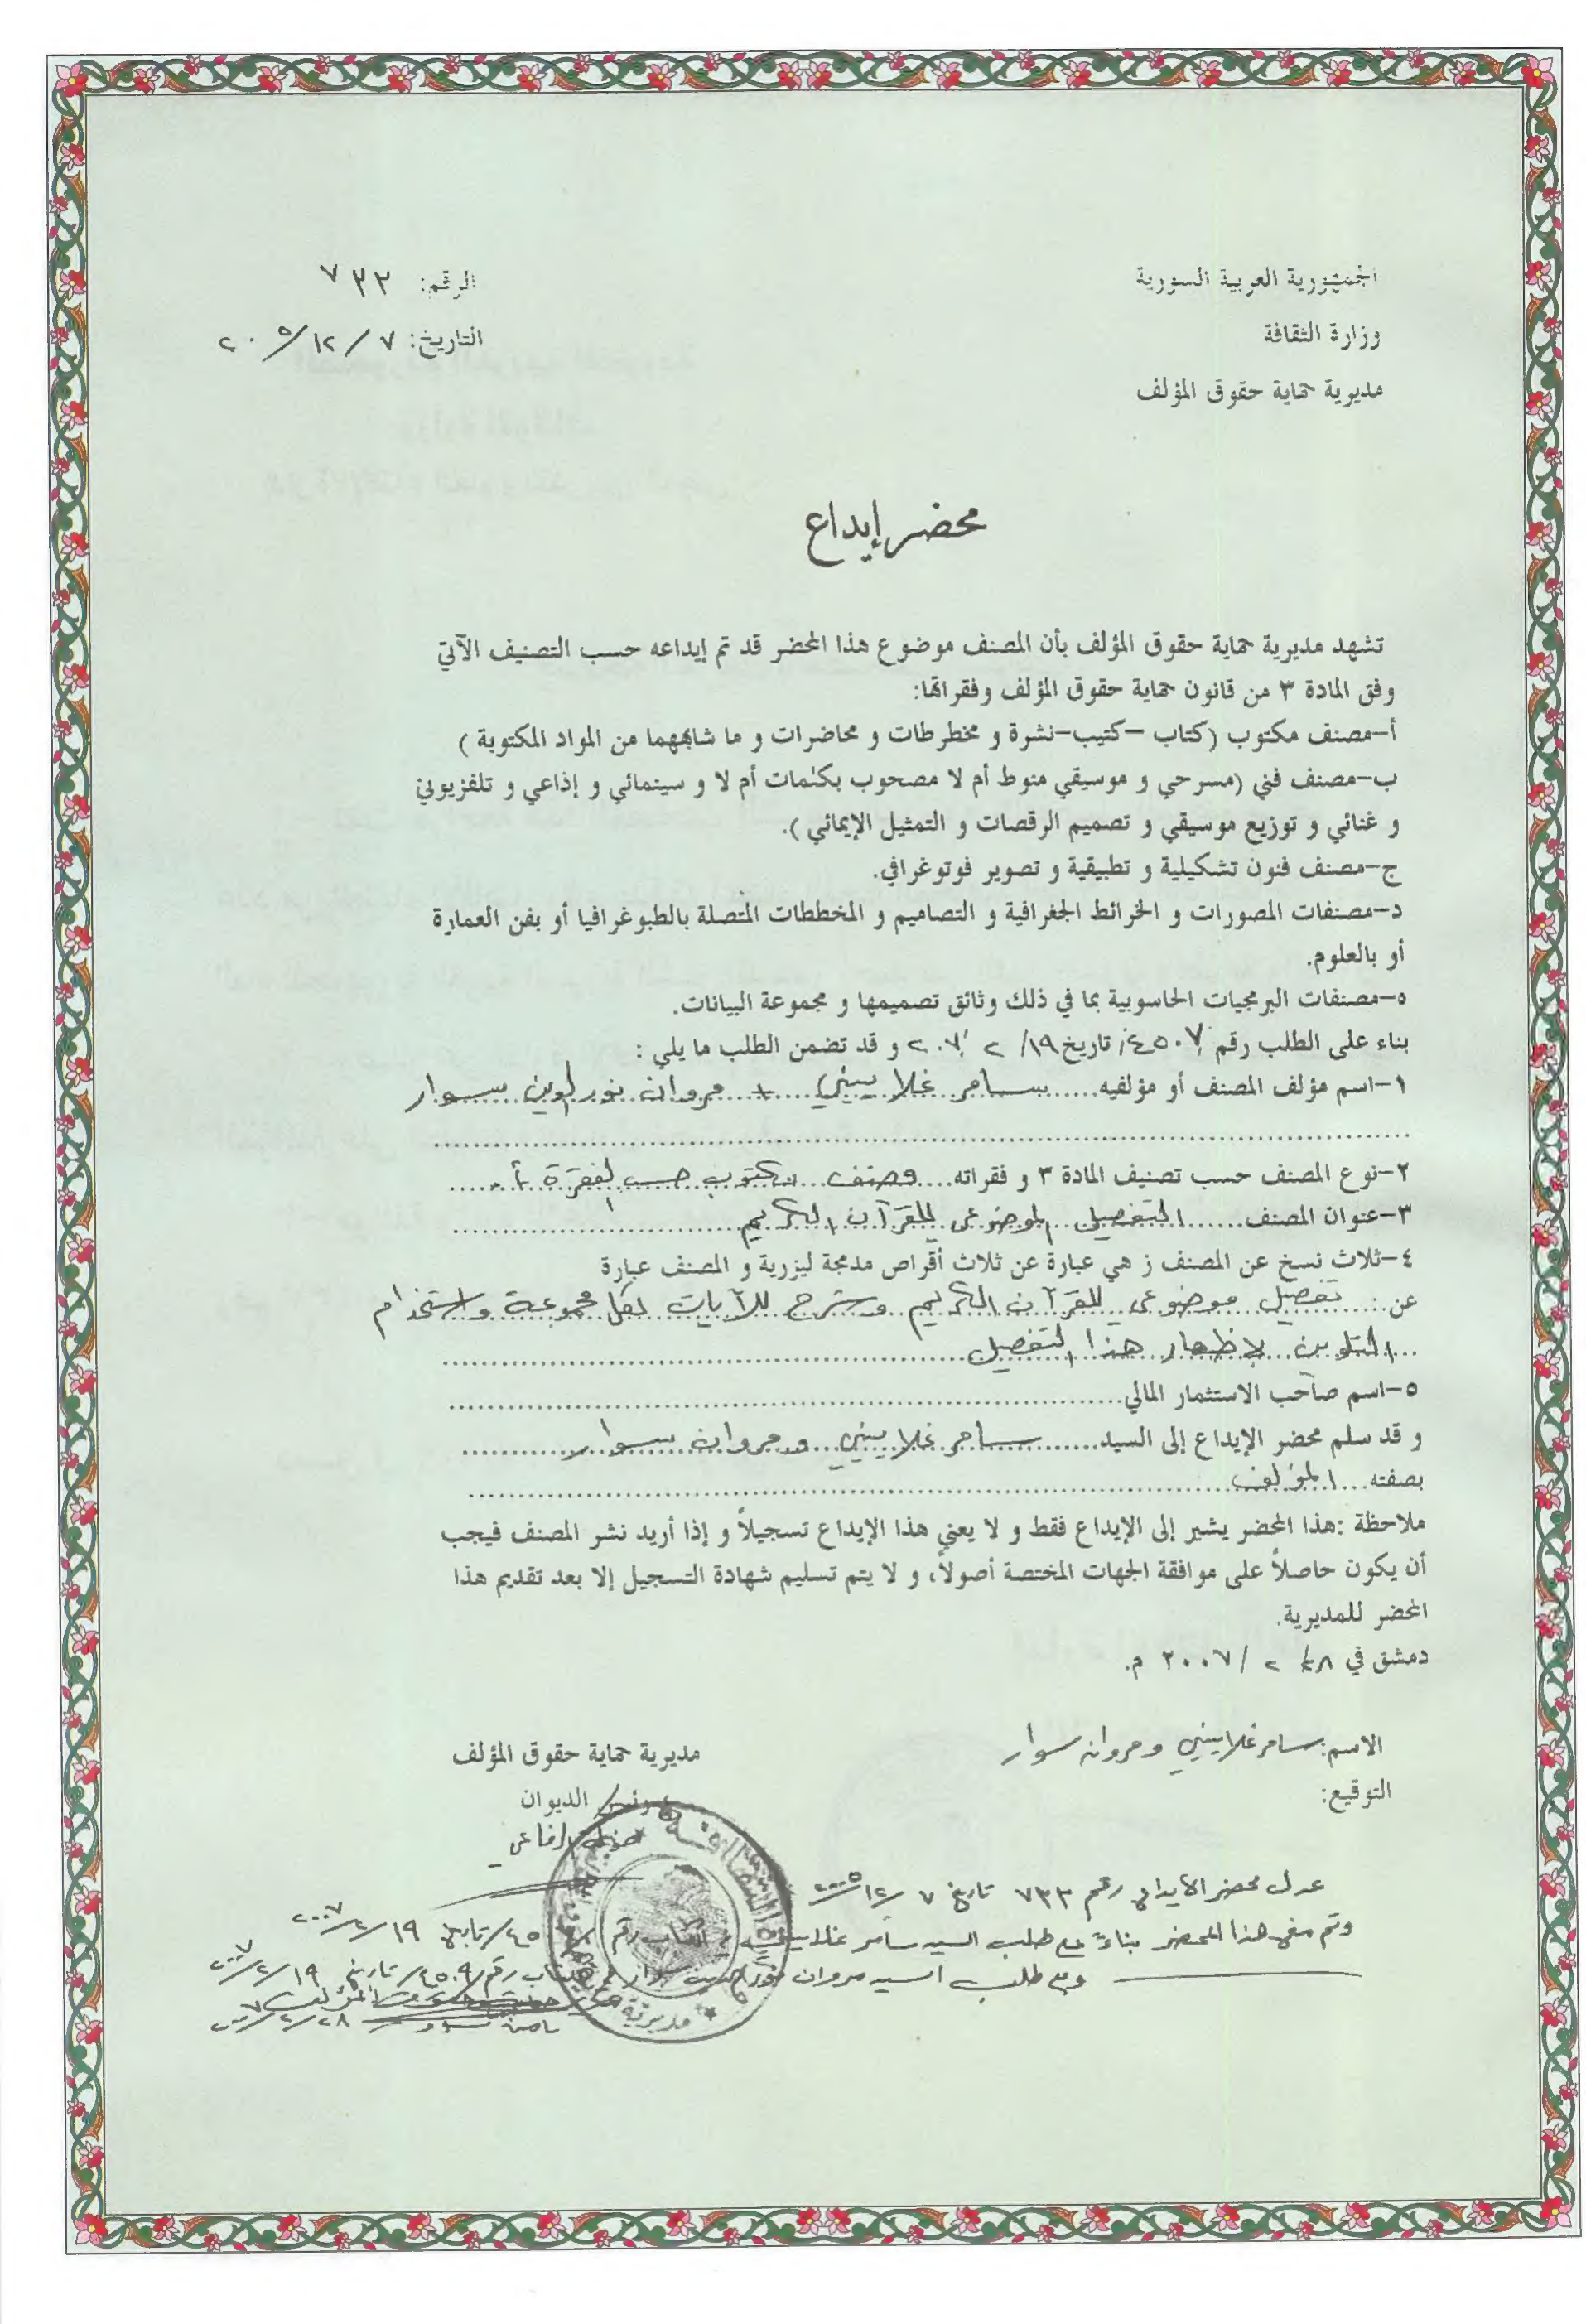 الجمهورية العربية السورية
وزارة الثقافة
مديرية حماية حقوق المؤلف
الرقم: ٧٣٣
التاريخ: ٧ / ١٢ / ٢٠٠٥
محضر إيداع
تشهد مديرية حماية حقوق المؤلف بأن المصنف موضوع هذا المحضر قد تم إيداعه حسب التصنيف الآتي
وفق المادة ٣ من قانون حماية حقوق المؤلف وفقراتها:
أ-مصنف مكتوب (كتاب -كتيب-نشرة و مخطرطات و محاضرات و ما شابههما من المواد المكتوبة )
ب-مصنف فني (مسرحي و موسيقي منوط أم لا مصحوب بكلمات أم لا و سينمائي و إذاعي و تلفزيوني
و غنائي و توزيع موسيقي و تصميم الرقصات و التمثيل الإيمائي ).
ج-مصنف فنون تشكيلية و تطبيقية و تصوير فوتوغرافي.
د-مصنفات المصورات و الخرائط الجغرافية و التصاميم و المخططات المتصلة بالطبوغرافيا أو بفن العمارة
أو بالعلوم.
ه-مصنفات البرمجيات الحاسوبية بما في ذلك وثائق تصميمها و مجموعة البيانات.
بناء على الطلب رقم /٤٥٠٧/ تاريخ ١٩/ ٢ /٢٠٠٧ و قد تضمن الطلب ما يلي :
١-اسم مؤلف المصنف أو مؤلفيه......سامر غلاييني + مروان نور الدين سوار
٢-نوع المصنف حسب تصنيف المادة ٣ و فقراته....مصنف مكتوب حسب الفقرة أ.
٣-عنوان المصنف......التفصيل الموضوعي للقرآن الكريم
٤-ثلاث نسخ عن المصنف ز هي عبارة عن ثلاث أقراص مدمجة ليزرية و المصنف عبارة
عن: تفصيل موضوعي للقرآن الكريم وشرح للآيات لكل مجموعة واستخدام
التلوين لإظهار هذا التفصيل
٥-اسم صاحب الاستثمار المالي
و قد سلم محضر الإيداع إلى السيد......سامر غلاييني و مروان سوار
بصفته... المؤلف
ملاحظة :هذا المحضر يشير إلى الإيداع فقط و لا يعني هذا الإيداع تسجيلاً و إذا أريد نشر المصنف فيجب
أن يكون حاصلاً على موافقة الجهات المختصة أصولاً، و لا يتم تسليم شهادة التسجيل إلا بعد تقديم هذا
المحضر للمديرية.
دمشق في ٢٨/ ٢ /٢٠٠٧ م.
الاسم: سامر غلاييني و مروان سوار
التوقيع:
مديرية حماية حقوق المؤلف
رئيس الديوان
عدل محضر الايداع رقم ٧٣٣ تاريخ ٧ /١٢/ ٢٠٠٥
وتم منح هذا المحضر بناءً على طلب السيد سامر غلاييني تاريخ ١٩ /٢/ ٢٠٠٧
وعلى طلب السيد مروان نور الدين سوار رقم /٤٥٠٩/ تاريخ ١٩ /٢/ ٢٠٠٧
٢٨ /٢/ ٢٠٠٧